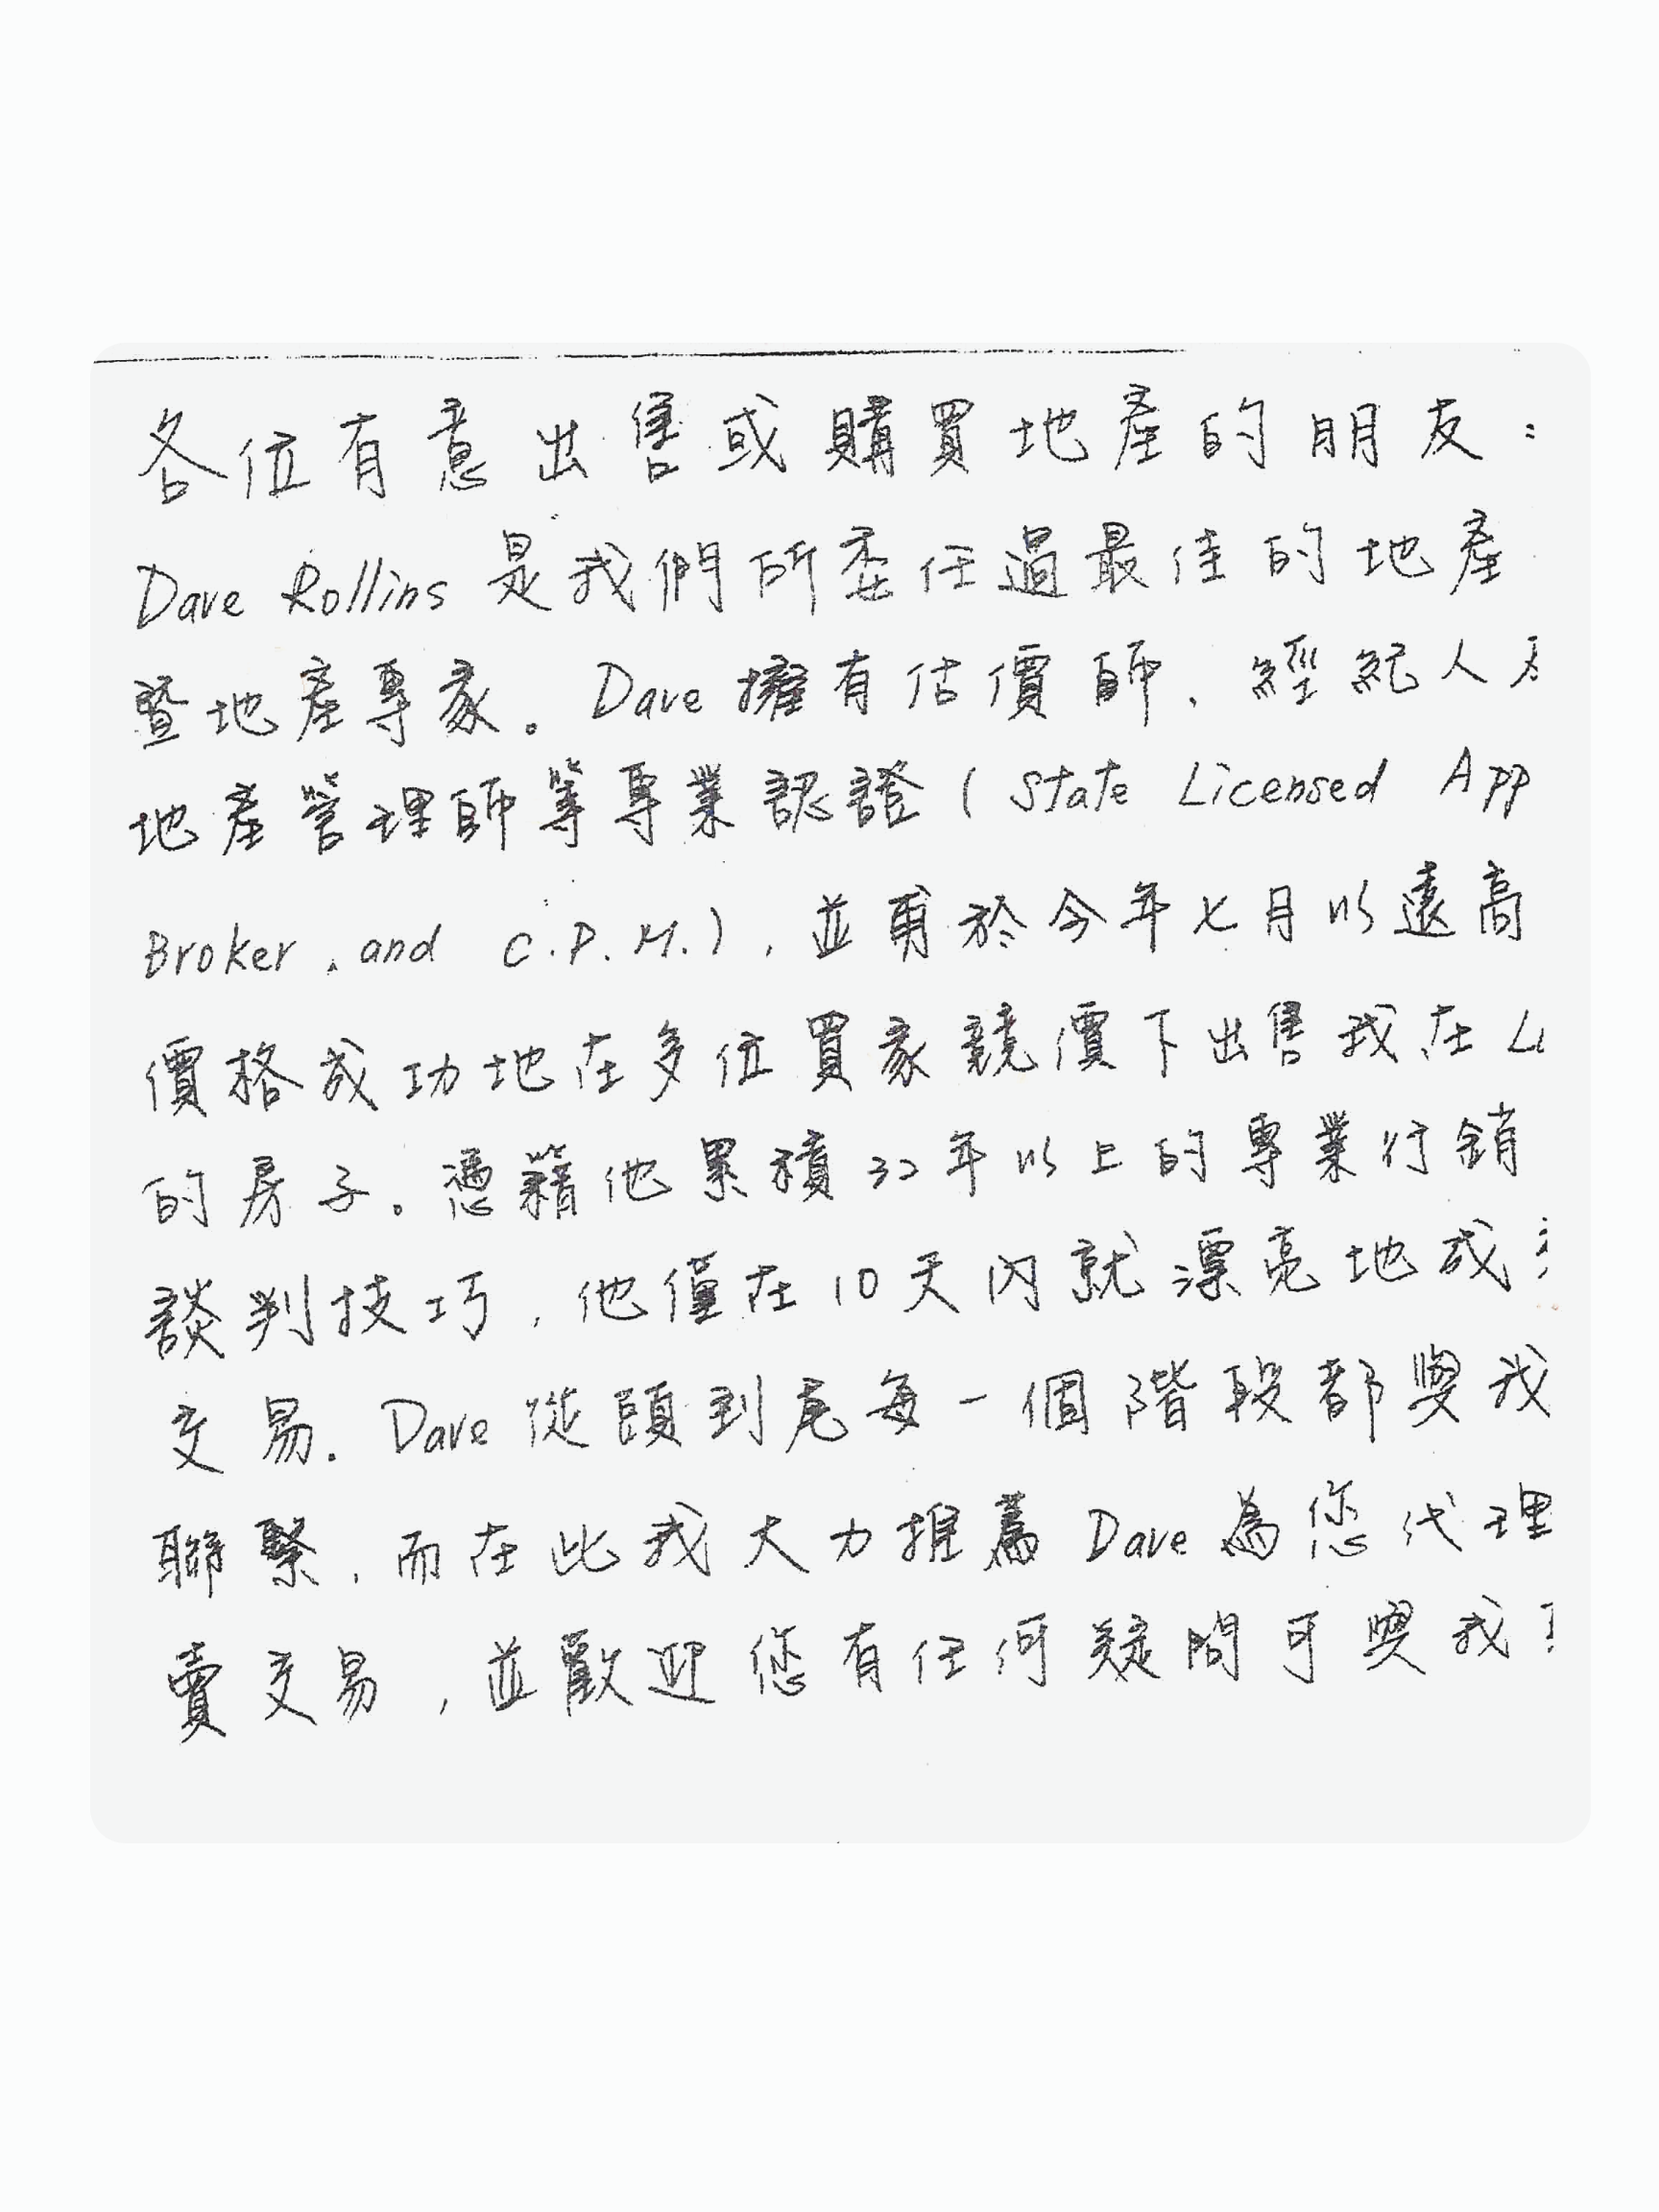 各位有意出售或購買地產的朋友：
Dave Rollins 是我們所委任過最佳的地產
暨地產專家。Dave 擁有估價師、經紀人
地產管理師等專業認證 (State Licensed App
Broker, and C.P.M.), 並甫於今年七月以遠高
價格成功地在多位買家競價下出售我在
的房子。憑藉他累積32年以上的專業行銷
談判技巧，他僅在10天內就漂亮地成
交易. Dave 從頭到尾每一個階段都與我
聯繫，而在此我大力推薦 Dave 為您代理
賣交易，並歡迎您有任何疑問可與我